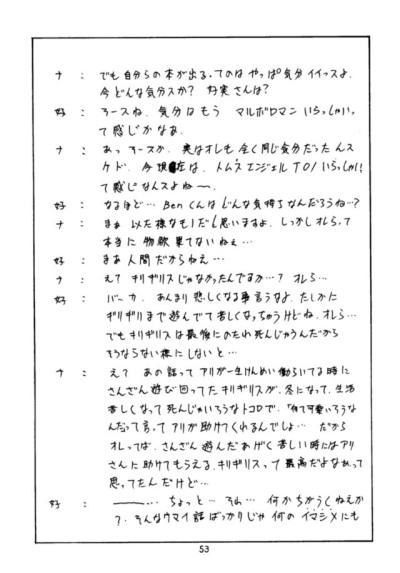 ナ : でも自分らの本が出る、てのはやっぱ気分イイっスよ、
今どんな気分スか? 好実さんは?
好 : そースね、気分はもう マルボロマンいらっしゃいっ
て感じかなぁ、
ナ : あっそースか、実はオレも全く同じ気分だったんス
ケド、今現在は、トムスエンジェルTO!いらっしゃい!
て感じなんスよねー、
好 : なるほど… Benくんはどんな気持ちなんだろうね…?
ナ : まぁ 似た様なモノだと思いますよ、しっかしオレらって
本当に物欲果てないねぇ…
好 : まあ人間だからねえ…
ナ : え? キリギリスじゃなかったんですか…? オレら…
好 : バーカ、あんまり悲しくなる事言うなよ、たしかに
ギリギリまで遊んでて苦しくなっちゃうけどね、オレら…
でもキリギリスは最後にのたれ死んじゃうんだから
そうならない様にしないと…
ナ : え? あの話ってアリが一生けんめい働らいてる時に
さんざん遊び回ってたキリギリスが、冬になって、生活
苦しくなって死んじゃいそうなトコロで、「何て可愛いそうな
んだ」って言って アリが助けてくれるんでしょ… だから
オレってば、さんざん遊んだあげく苦しい時にはアリ
さんに助けてもらえる、キリギリスって最高だよなぁって
思ってたんだけど…
好 : ―…ちょっと… それ… 何かちがうくねえか
?、そんなウマイ話ばっかりじゃ何のイマシメにも
53